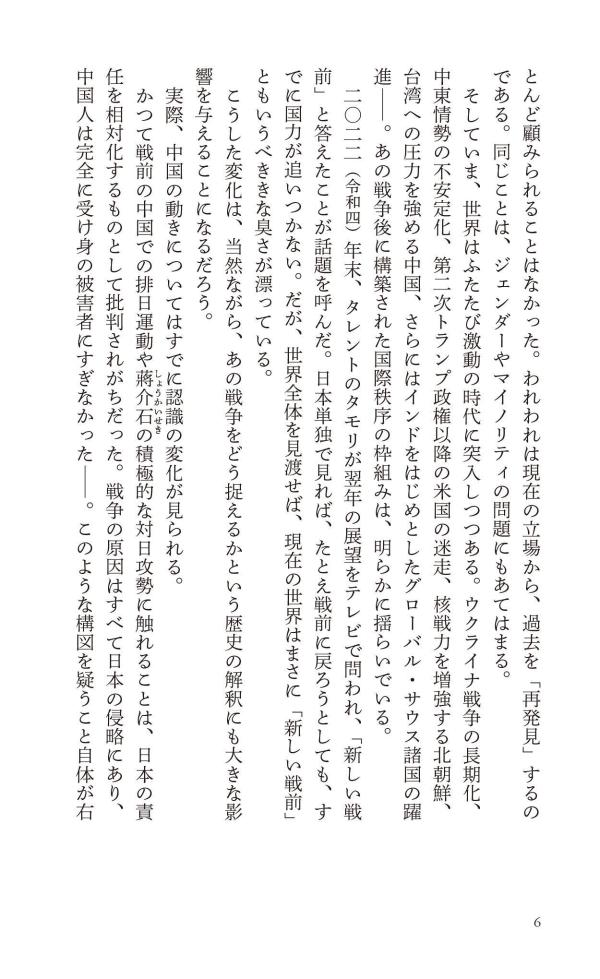 とんど顧みられることはなかった。われわれは現在の立場から、過去を「再発見」するの
である。同じことは、ジェンダーやマイノリティの問題にもあてはまる。
　そしていま、世界はふたたび激動の時代に突入しつつある。ウクライナ戦争の長期化、
中東情勢の不安定化、第二次トランプ政権以降の米国の迷走、核戦力を増強する北朝鮮、
台湾への圧力を強める中国、さらにはインドをはじめとしたグローバル・サウス諸国の躍
進――。あの戦争後に構築された国際秩序の枠組みは、明らかに揺らいでいる。
　二〇二二（令和四）年末、タレントのタモリが翌年の展望をテレビで問われ、「新しい戦
前」と答えたことが話題を呼んだ。日本単独で見れば、たとえ戦前に戻ろうとしても、す
でに国力が追いつかない。だが、世界全体を見渡せば、現在の世界はまさに「新しい戦前」
ともいうべききな臭さが漂っている。
　こうした変化は、当然ながら、あの戦争をどう捉えるかという歴史の解釈にも大きな影
響を与えることになるだろう。
　実際、中国の動きについてはすでに認識の変化が見られる。
　かつて戦前の中国での排日運動や蔣介石しょうかいせきの積極的な対日攻勢に触れることは、日本の責
任を相対化するものとして批判されがちだった。戦争の原因はすべて日本の侵略にあり、
中国人は完全に受け身の被害者にすぎなかった――。このような構図を疑うこと自体が右
6